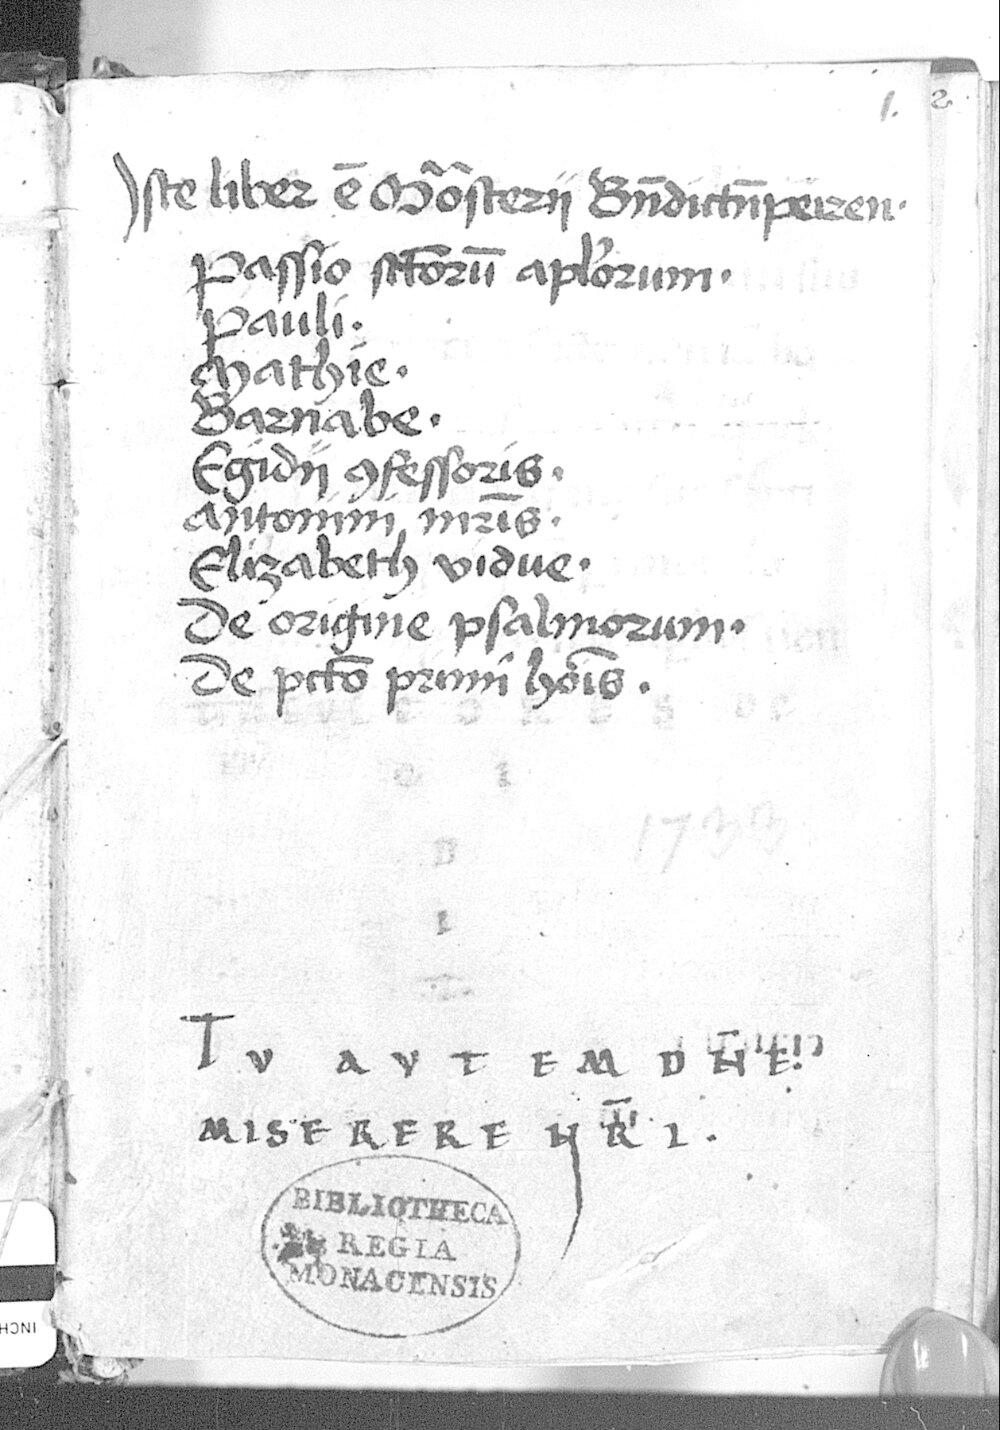 1. 2
Iste liber ē Mōōsterij Bn̄dictn̄peiren·
Passio sctōrū aplʼorum·
Pauli·
Mathie·
Barnabe·
Egidij ꝯfessoris·
Antonini mr̄is·
Elizabeth vidue·
De origine psalmorum·
De pctō primi hōis·
1733
TV AVTEM DN̄E
MISERERE NR̄I.
BIBLIOTHECA
REGIA
MONACENSIS
INCH